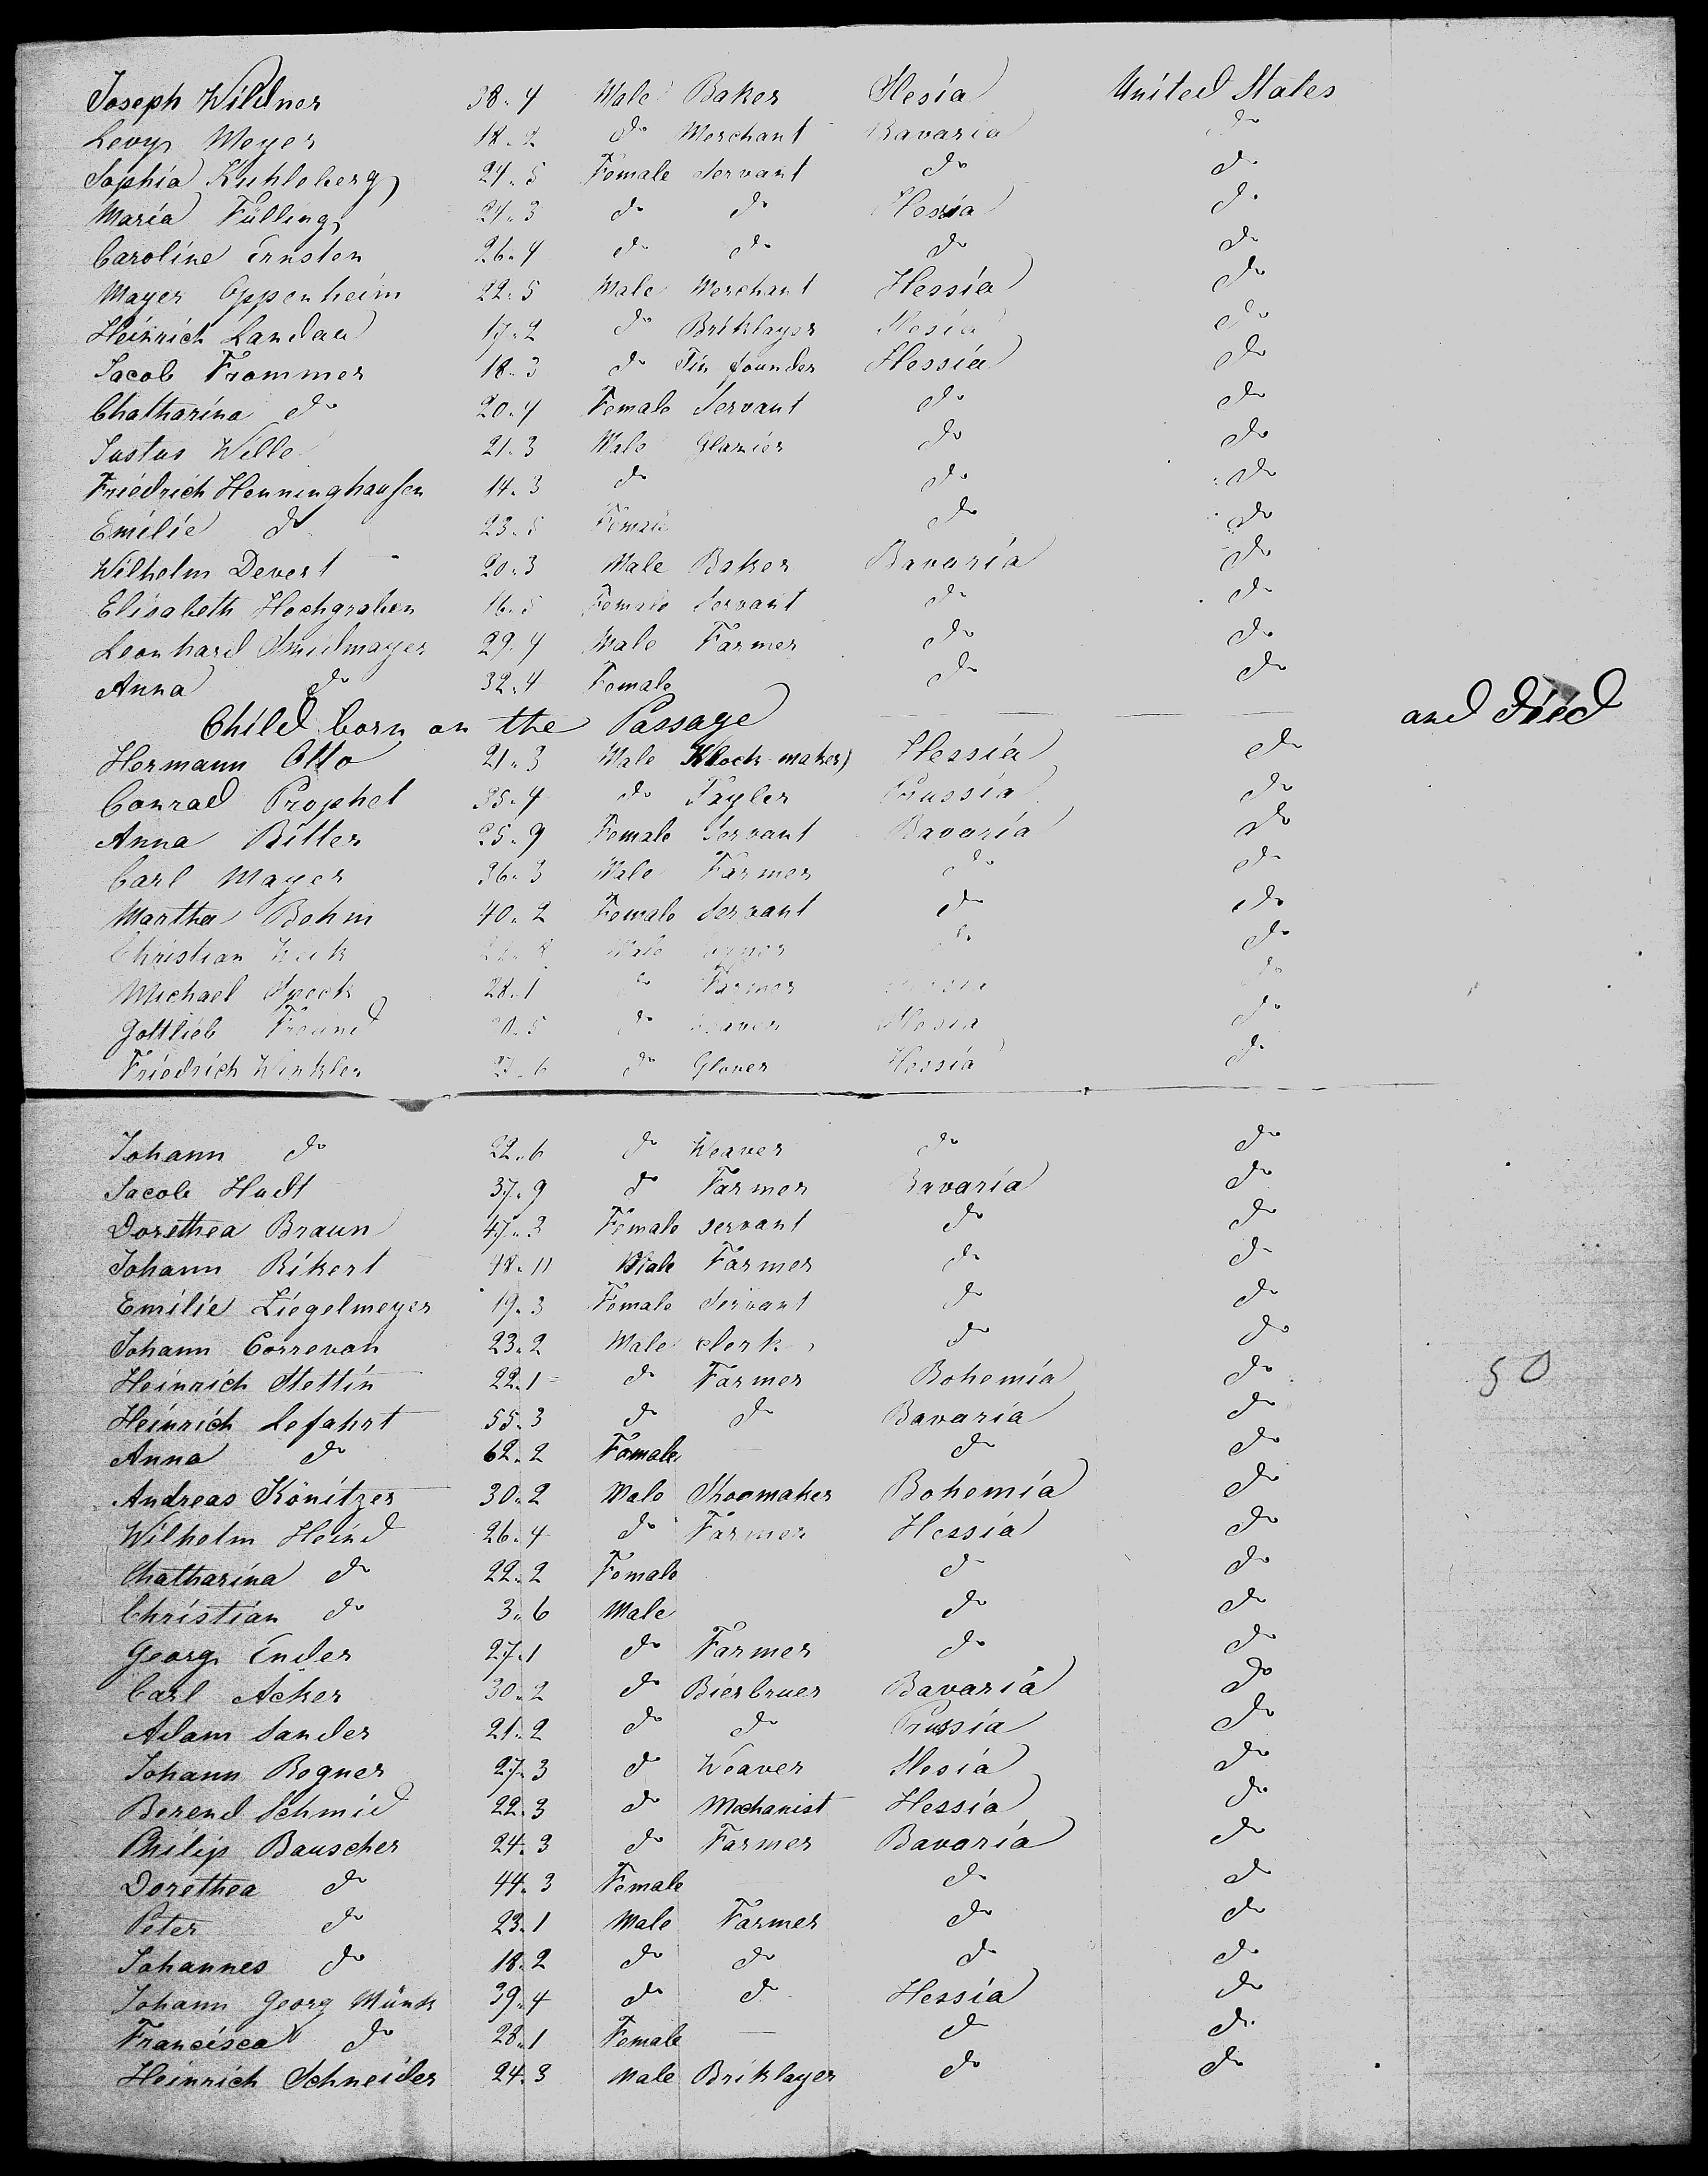 Joseph Wildner 38. 4 Male Baker Slesia United States
Levy Meyer 18. 2 do Merchant Bavaria do
Sophia Kuhloberg 24. 5 Female Servant do do
Maria Fülling 24. 3 do do Hessia do
Caroline Ernsten 26. 4 do do do do
Mayer Oppenheim 22. 5 Male Merchant Hessia do
Heinrich Landau 17. 2 do Briklayer Slesia do
Jacob Frommer 18. 3 do Tin founder Hessia do
Chatharina do 20. 4 Female Servant do do
Justus Wille 21. 3 Male Glazier do do
Friedrich Henninghausen 14. 3 do do do
Emilie do 23. 5 Female do do
Wilhelm Devert 20. 3 Male Baker Bavaria do
Elisabeth Hochgraben 16. 5 Female Servant do do
Leonhard Smidmayer 29. 4 Male Farmer do do
Anna do 32. 4 Female do do
Child born on the Passage and died
Hermann Otto 21. 3 Male Klock maker Hessia do
Conrad Prophet 35. 4 do Tayler Prussia do
Anna Bitter 25. 9 Female Servant Bavaria do
Carl Mayer 36. 3 Male Farmer do do
Martha Bohm 40. 2 Female Servant do do
Christian Male do do
Michael Speck 28. 1 do Farmer do
Gottlieb Freund do Slesia do
Friedrich Winkler 6 do Glover Hessia do
Johann do 22. 6 do Weaver do do
Jacob Hudt 37. 9 do Farmer Bavaria do
Dorethea Braun 47. 3 Female servant do do
Johann Rikert 48. 11 Male Farmer do do
Emilie Ziegelmeyer 19. 3 Female Servant do do
Johann Correvon 23. 2 Male clerk do do
Heinrich Stettin 22. 1 do Farmer Bohemia do
50
Heinrich Lefahrt 55. 3 do do Bavaria do
Anna do 62. 2 Female do do
Andreas Könitzer 30. 2 Male Shoomaker Bohemia do
Wilhelm Heind 26. 4 do Farmer Hessia do
Chatharina do 22. 2 Female do do
Christian do 3. 6 Male do do
Georg Ender 27. 1 do Farmer do do
Carl Acker 30. 2 do Bierbruer Bavaria do
Adam Sander 21. 2 do do Prussia do
Johann Bogner 27. 3 do Weaver Slesia do
Berend Schmid 22. 3 do Mechanist Hessia do
Philip Bauscher 24. 3 do Farmer Bavaria do
Dorethea do 44. 3 Female do do
Peter do 23. 1 Male Farmer do do
Johannes do 18. 2 do do do do
Johann Georg Münk 39. 4 do do Hessia do
Francisca do 28. 1 Female do do
Heinrich Schneider 24. 3 Male Briklayer do do